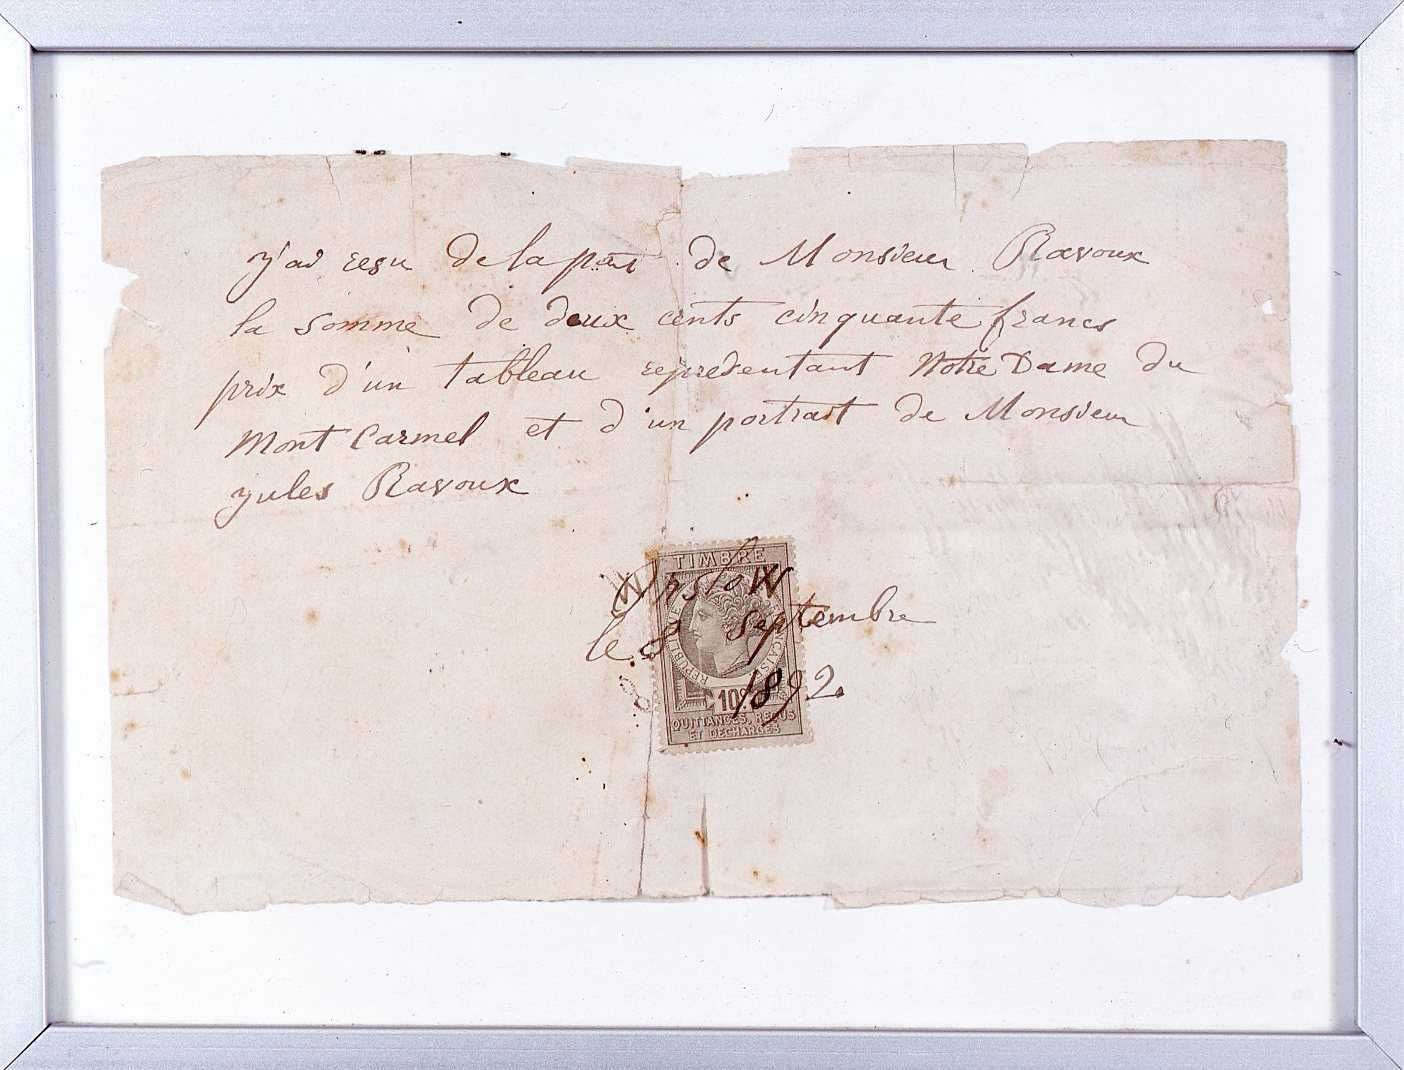 j'ai reçu de la part de Monsieur Ravoux
la somme de deux cents cinquante francs
prix d'un tableau représentant Notre Dame du
Mont Carmel et d'un portrait de Monsieur
Jules Ravoux
TIMBRE
le 8 Septembre
1892
RÉPUBLIQUE FRANÇAISE
10c
QUITTANCES, REÇUS
ET DÉCHARGES